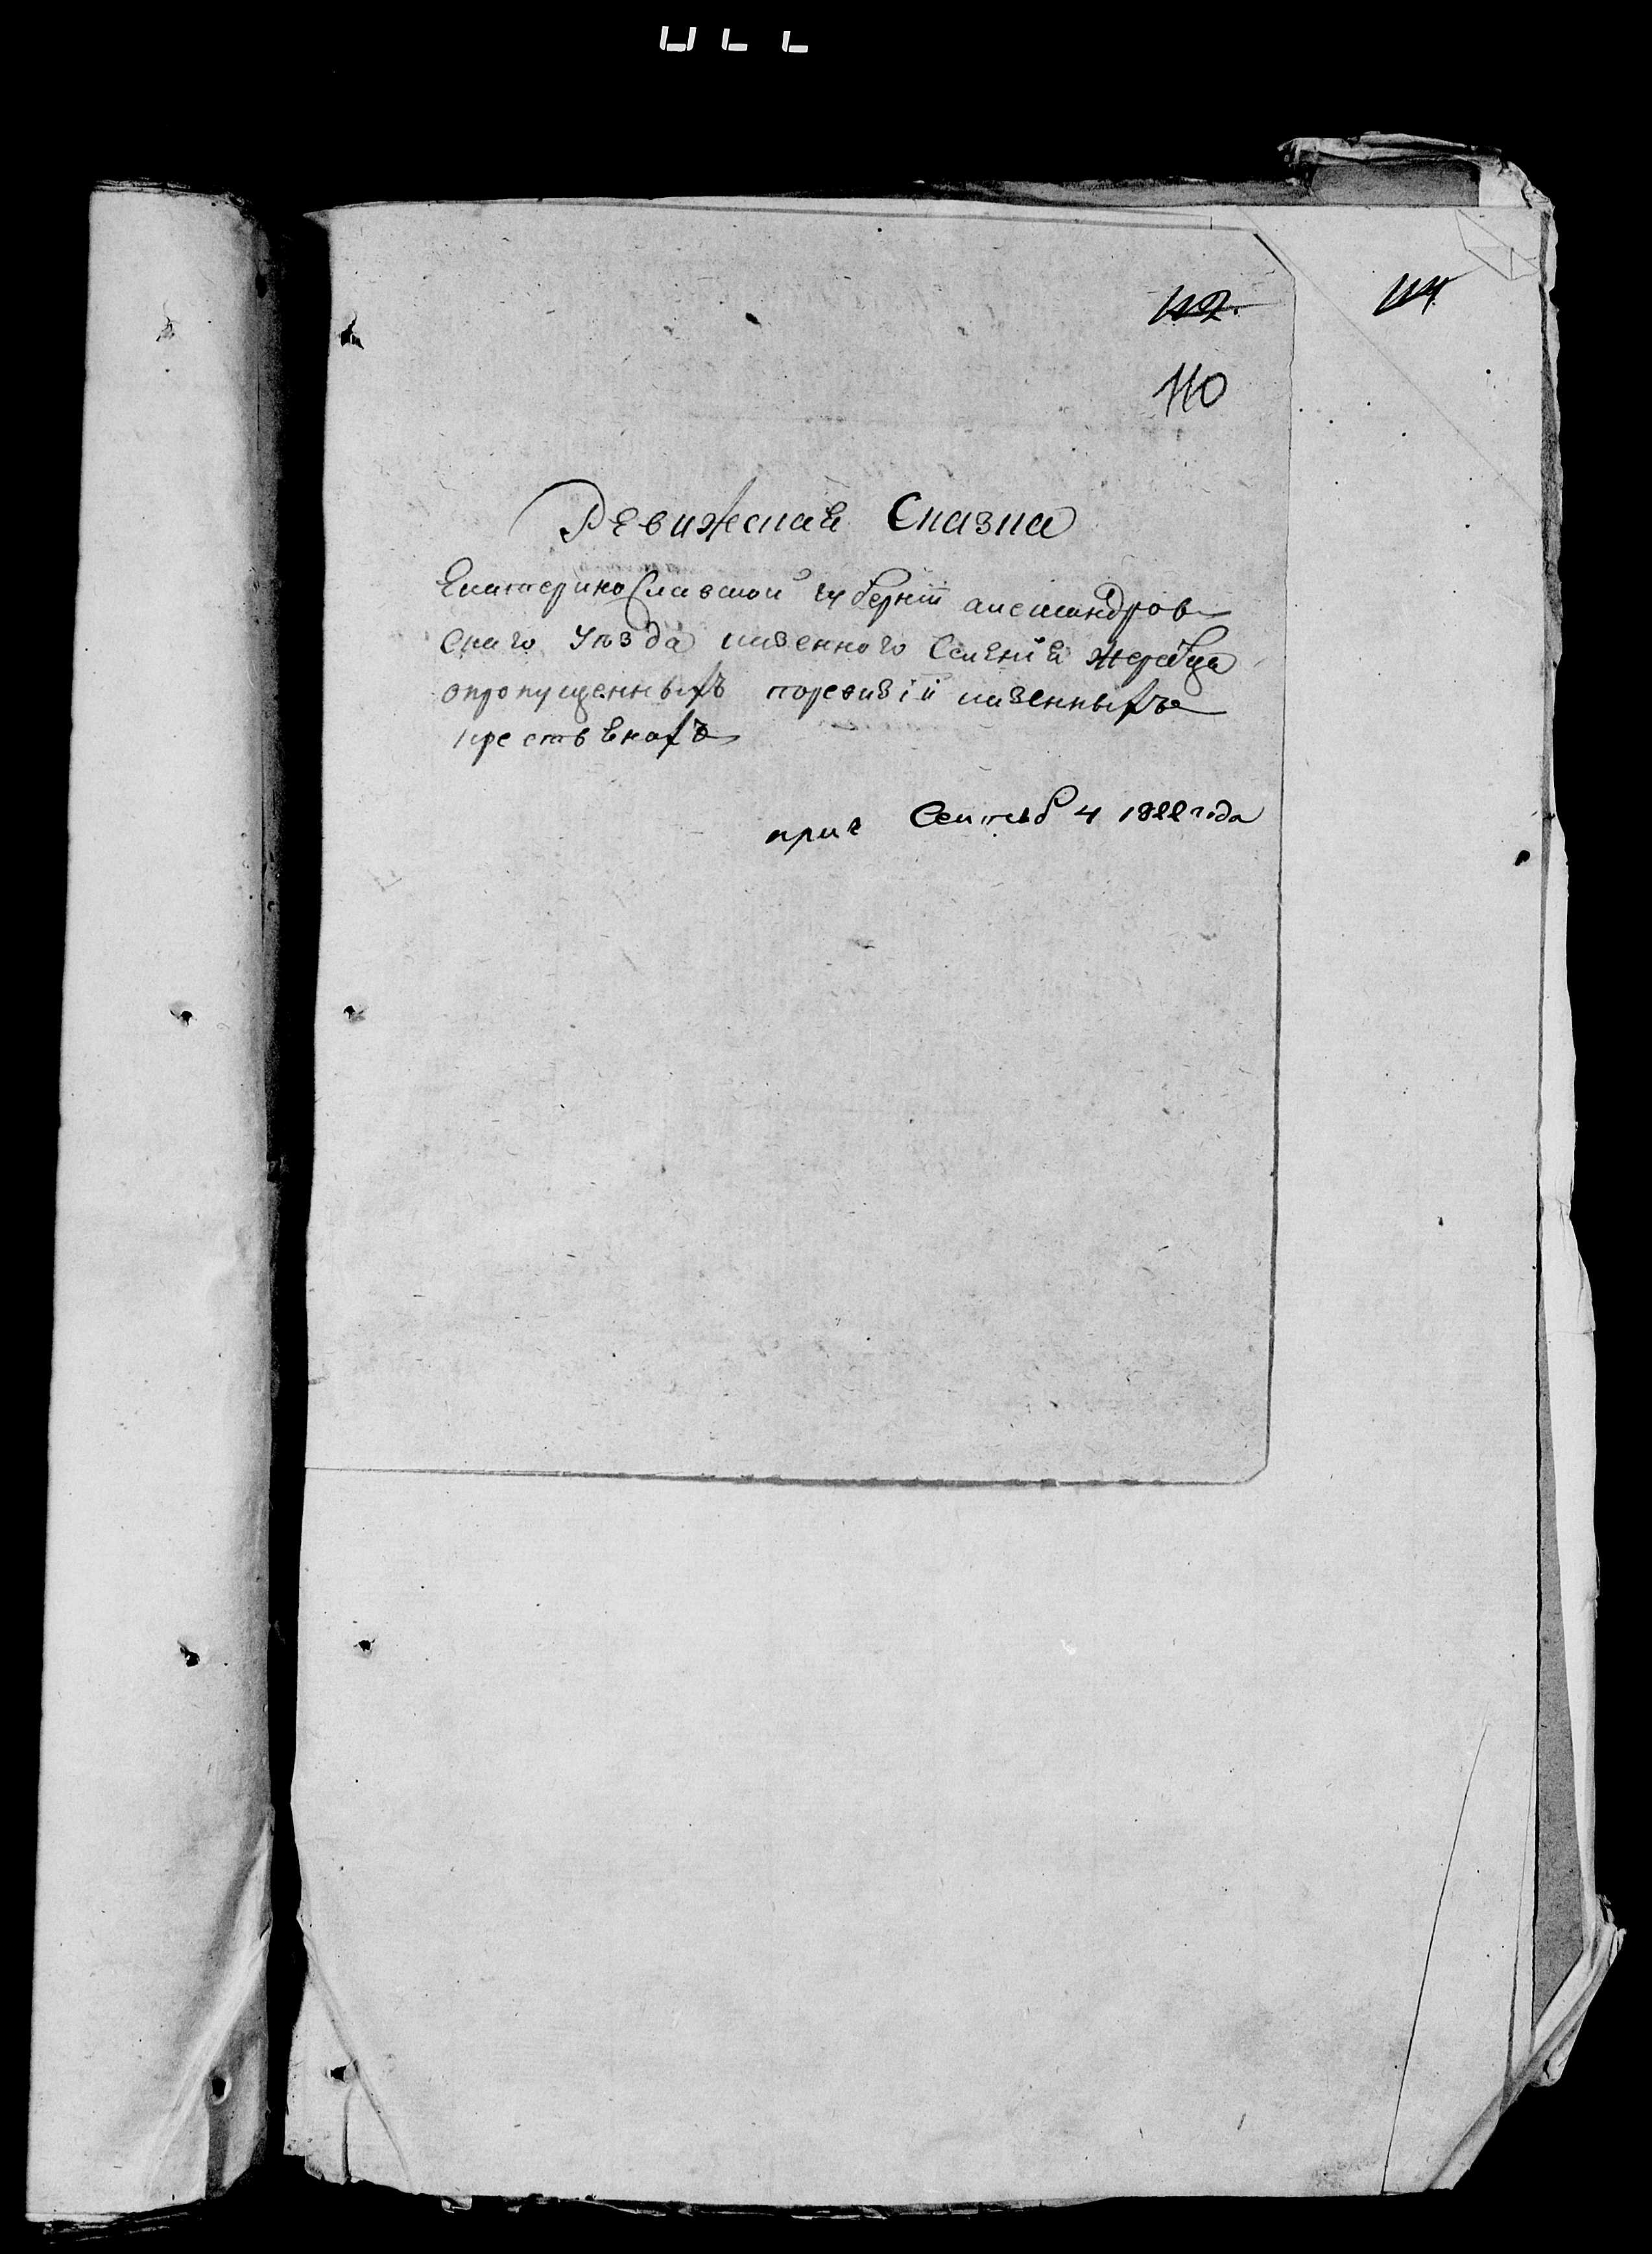 112.
114
110
Ревижская Сказка
Екатеринославской губернiи александров
скаго уѣзда казенного Селенiя жеребца
опропущенныхъ поревизiи казенныхъ
крестьенахъ
Сентяб 4 1822 года